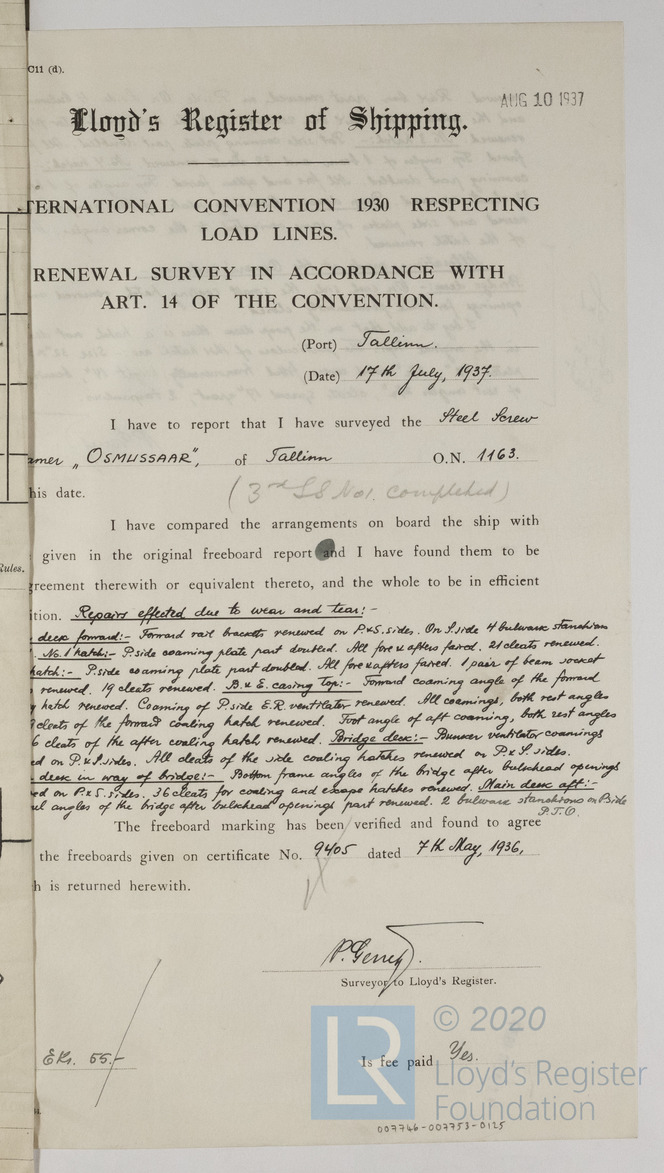 C11 (d).
AUG 10 1937
Lloyd's Register of Shipping.
TERNATIONAL CONVENTION 1930 RESPECTING
LOAD LINES.
RENEWAL SURVEY IN ACCORDANCE WITH
ART. 14 OF THE CONVENTION.
(Port) Tallinn.
(Date) 17th July, 1937.
I have to report that I have surveyed the Steel Screw
amer „OSMUSSAAR", of Tallinn O.N. 1163.
his date. (3rd SS No1. completed)
I have compared the arrangements on board the ship with
given in the original freeboard report and I have found them to be
Rules.
greement therewith or equivalent thereto, and the whole to be in efficient
ition. Repairs effected due to wear and tear:-
deck forward:- Forward rail brackets renewed on P.&S. sides. On S.side 4 bulwark stanchions
No.1 hatch:- P.side coaming plate part doubled. All fore & afters faired. 21 cleats renewed.
hatch:- P.side coaming plate part doubled. All fore & afters faired. 1 pair of beam socket
renewed. 19 cleats renewed. B.& E. casing top:- Forward coaming angle of the forward
hatch renewed. Coaming of P.side E.R ventilator renewed. All coamings, both rest angles
cleats of the forward coaling hatch renewed. Foot angle of aft coaming, both rest angles
6 cleats of the after coaling hatch renewed. Bridge deck:- Bunker ventilator coamings
ed on P.&S.sides. All cleats of the side coaling hatches renewed on P.& S. sides.
deck in way of bridge:- Bottom frame angles of the bridge after bulkhead openings
ed on P.& S. sides. 36 cleats for coaling and escape hatches renewed. Main deck aft:-
angles of the bridge after bulkhead openings part renewed. 2 bulwark stanchions on P.side
P.T.O.
The freeboard marking has been verified and found to agree
the freeboards given on certificate No. 9405 dated 7th May, 1936,
h is returned herewith.
Surveyor to Lloyd's Register.
EKr. 55.-
Is fee paid Yes.
© 2020
LR
Lloyd's Register
Foundation
007746-007753-0125